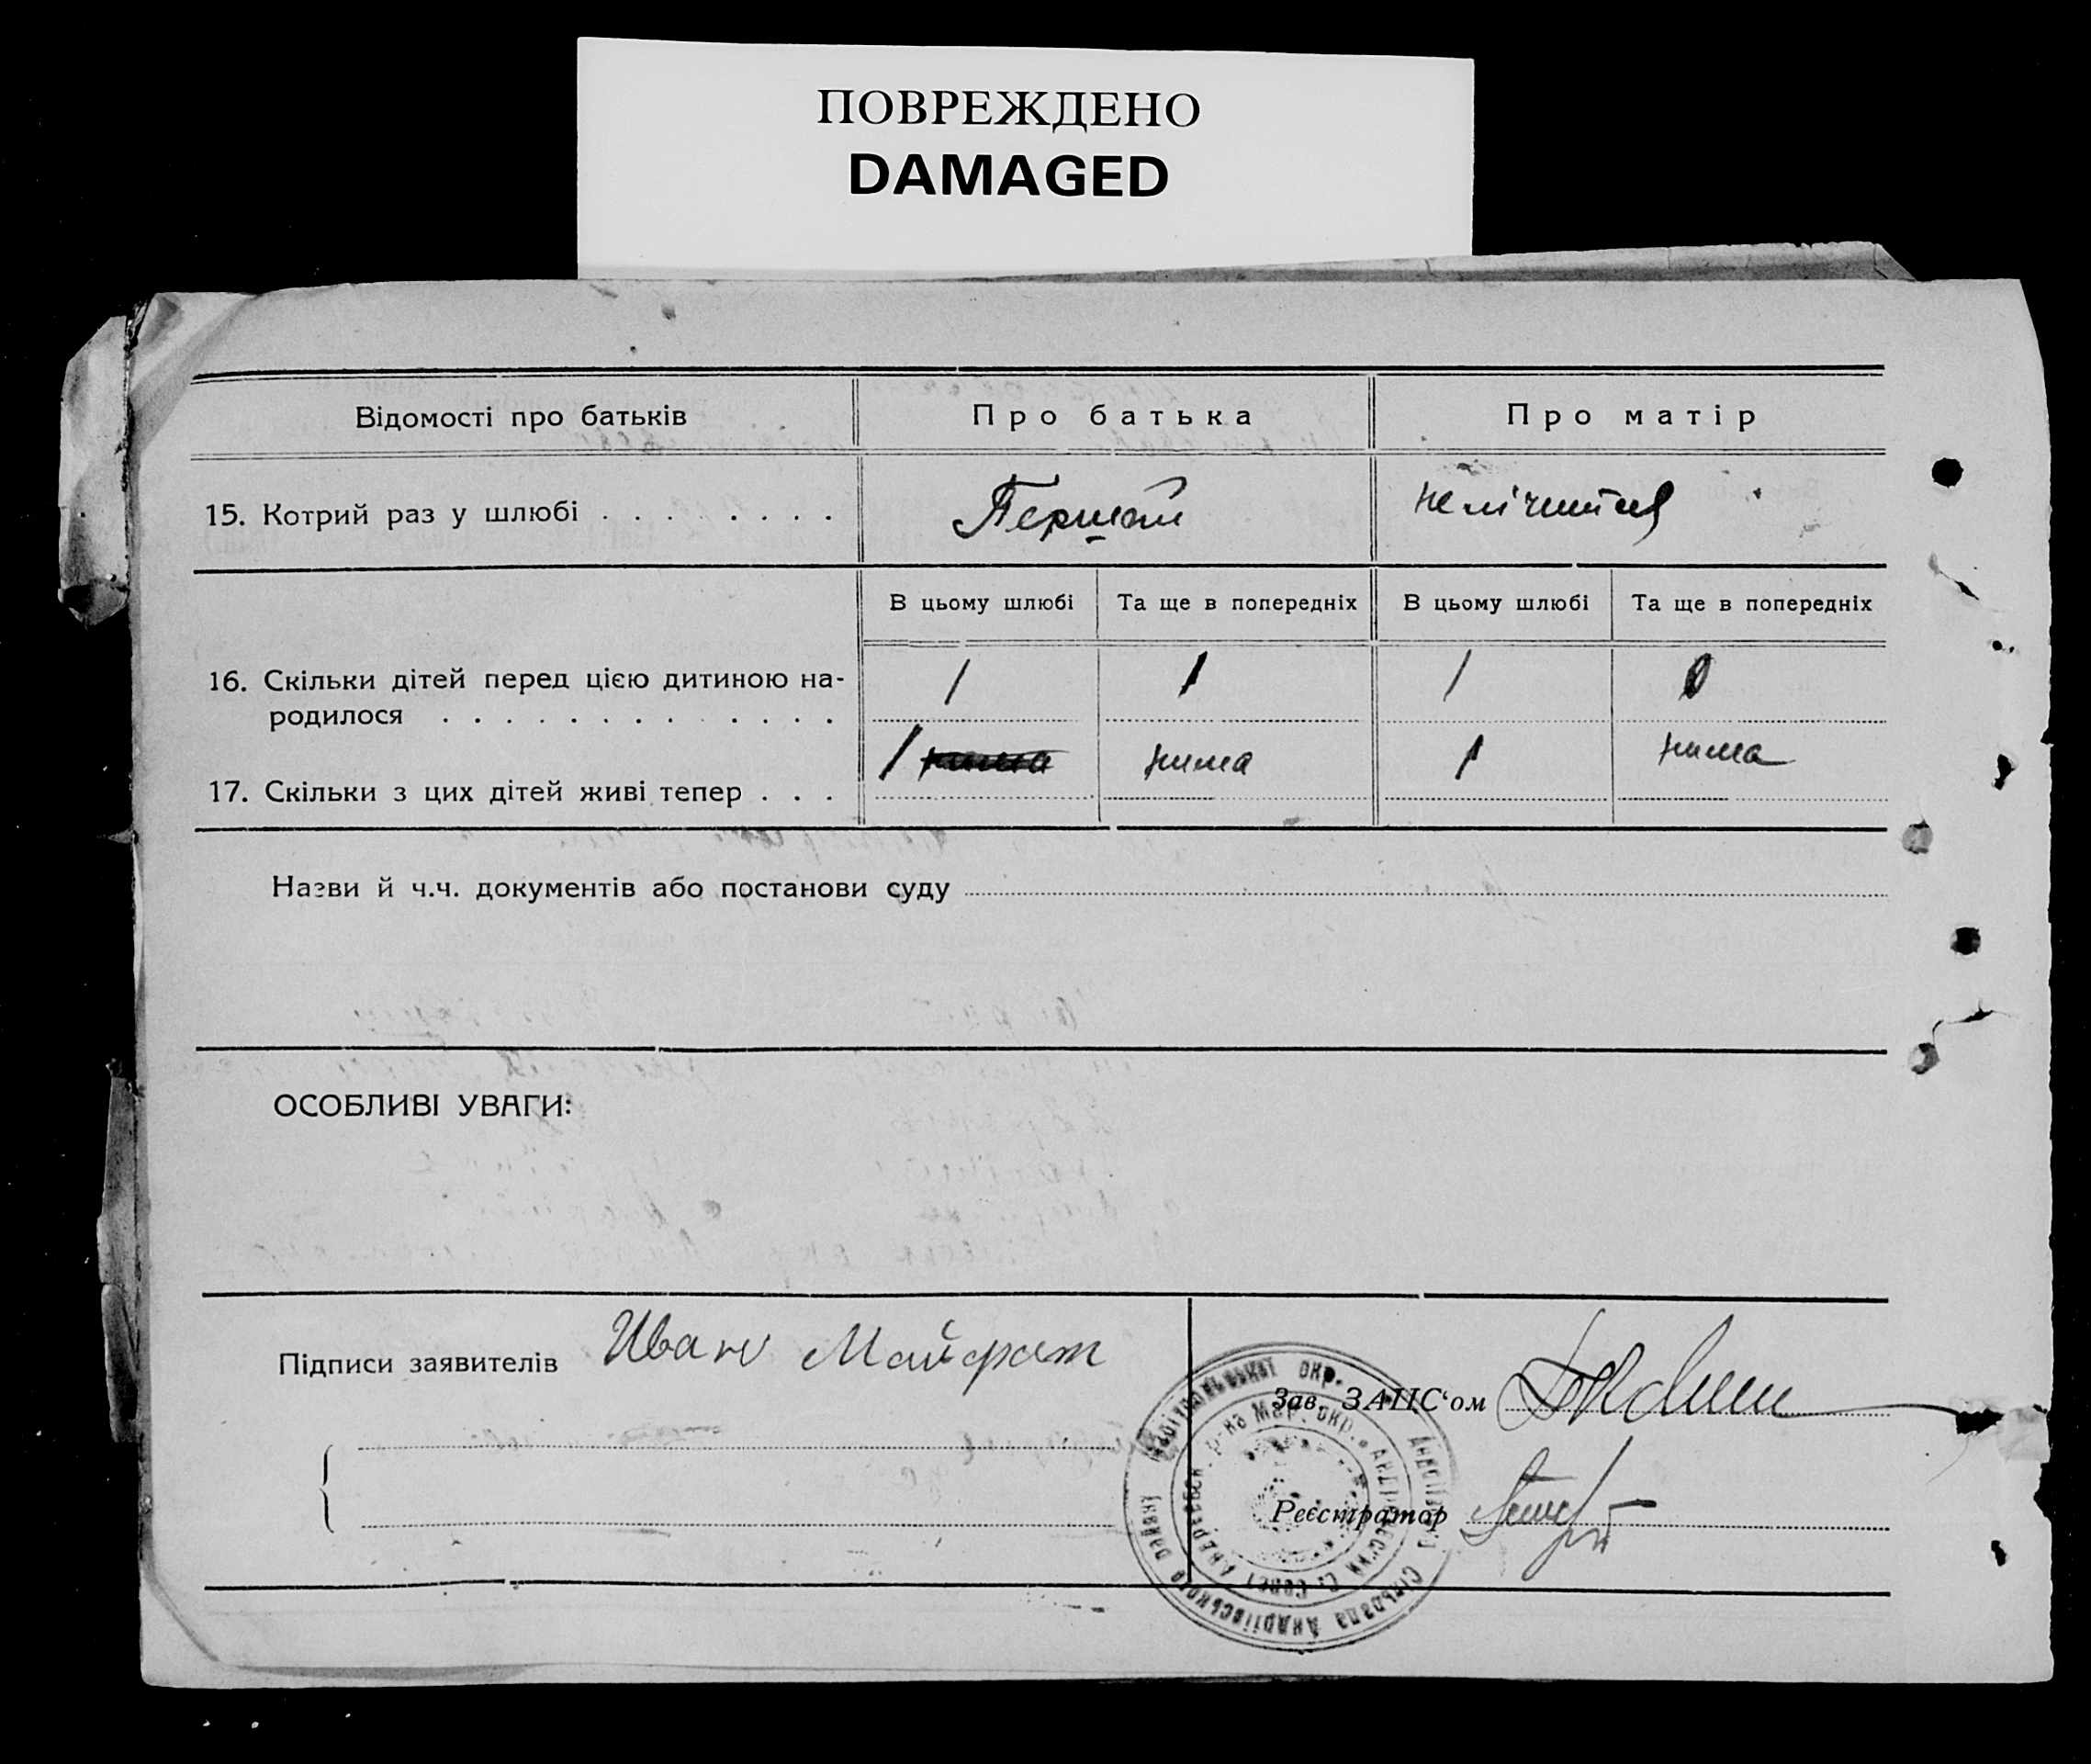 ПОВРЕЖДЕНО
DAMAGED
Відомості про батьків
Про батька
Про матір
15. Котрий раз у шлюбі . . . . . . . .
Перший
В цьому шлюбі
Та ще в попередніх
В цьому шлюбі
Та ще в попередніх
16. Скільки дітей перед цією дитиною на-
родилося . . . . . . . . . . . . .
1
1
1
0
17. Скільки з цих дітей живі тепер . . .
1
нима
1
нима
Назви й ч.ч. документів або постанови суду
ОСОБЛИВІ УВАГИ:
Підписи заявителів
Иван Майфат
Зав. ЗАПС'ом
Реєстратор